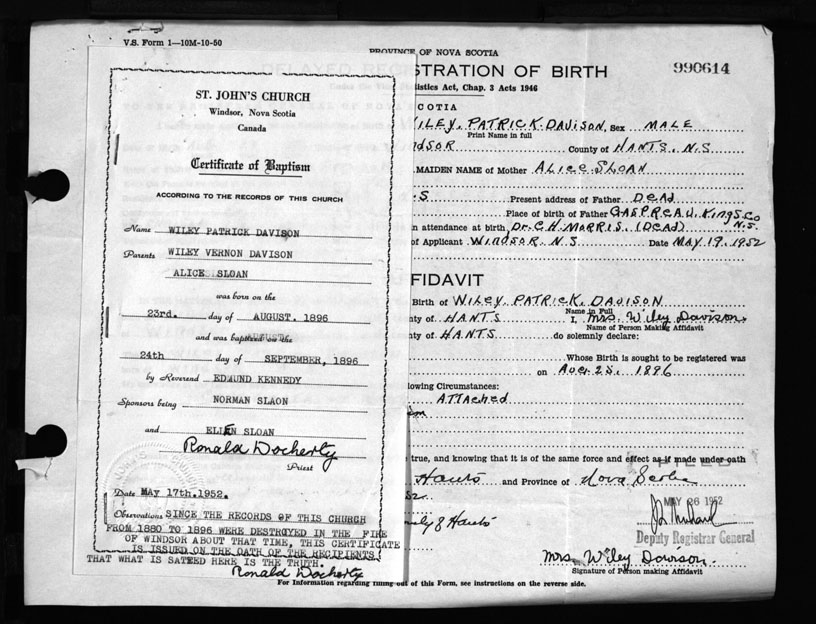 V.S. Form 1—10M-10-50
ST. JOHN'S CHURCH
Windsor, Nova Scotia
Canada
Certificate of Baptism
ACCORDING TO THE RECORDS OF THIS CHURCH
Name WILEY PATRICK DAVISON
Parents WILEY VERNON DAVISON
ALICE SLOAN
was born on the
23rd. day of AUGUST. 1896
and was baptized on the
24th day of SEPTEMBER, 1896
by Reverend EDMUND KENNEDY
Sponsors being NORMAN SLAON
and ELLEN SLOAN
Ronald Docherty
Priest
Date MAY 17th.1952.
Observations SINCE THE RECORDS OF THIS CHURCH
FROM 1880 TO 1896 WERE DESTROYED IN THE FIRE
OF WINDSOR ABOUT THAT TIME, THIS CERTIFICATE
IS ISSUED ON THE OATH OF THE RECIPIENTS
THAT WHAT IS SATEED HERE IS THE TRUTH.
Ronald Docherty
PROVINCE OF NOVA SCOTIA
DELAYED REGISTRATION OF BIRTH 990614
tistics Act, Chap. 3 Acts 1946
SCOTIA
WILEY. PATRICK. DAVISON, Sex MALE
Print Name in full
NDSOR County of HANTS. N.S
MAIDEN NAME of Mother ALICE. SLOAN
.S Present address of Father DEAD
Place of birth of Father GASPREAU. KINGS CO
N.S.
n attendance at birth Dr. C.H. MORRIS. (DEAD)
of Applicant WINDSOR. N.S Date MAY. 19. 1952
FFIDAVIT
Birth of WILEY. PATRICK. DAVISON
Name in Full
nty of HANTS I, Mrs. Wiley Davison.
Name of Person Making Affidavit
nty of HANTS. do solemnly declare:
Whose Birth is sought to be registered was
on 1896
lowing Circumstances:
ATTACHED
true, and knowing that it is of the same force and effect as if made under oath
FILED
Hants and Province of Nova Scotia
MAY 26 1952
Deputy Registrar General
Mrs. Wiley Davison.
Signature of Person making Affidavit
For Information regarding filling out of this Form, see instructions on the reverse side.